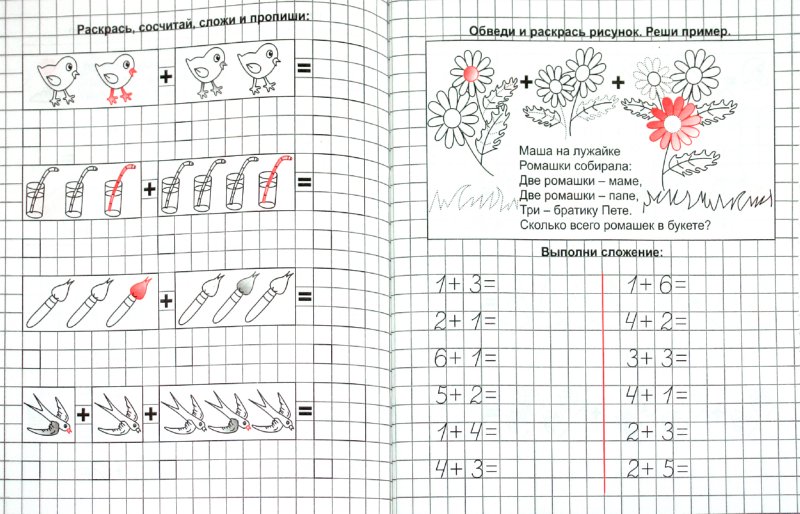 Раскрась, сосчитай, сложи и пропиши:
+ =
+ =
+ =
+ + =
Обведи и раскрась рисунок. Реши пример.
+ +
Маша на лужайке
Ромашки собирала:
Две ромашки – маме,
Две ромашки – папе,
Три – братику Пете.
Сколько всего ромашек в букете?
Выполни сложение:
1+3=
2+1=
6+1=
5+2=
1+4=
4+3=
1+6=
4+2=
3+3=
4+1=
2+3=
2+5=